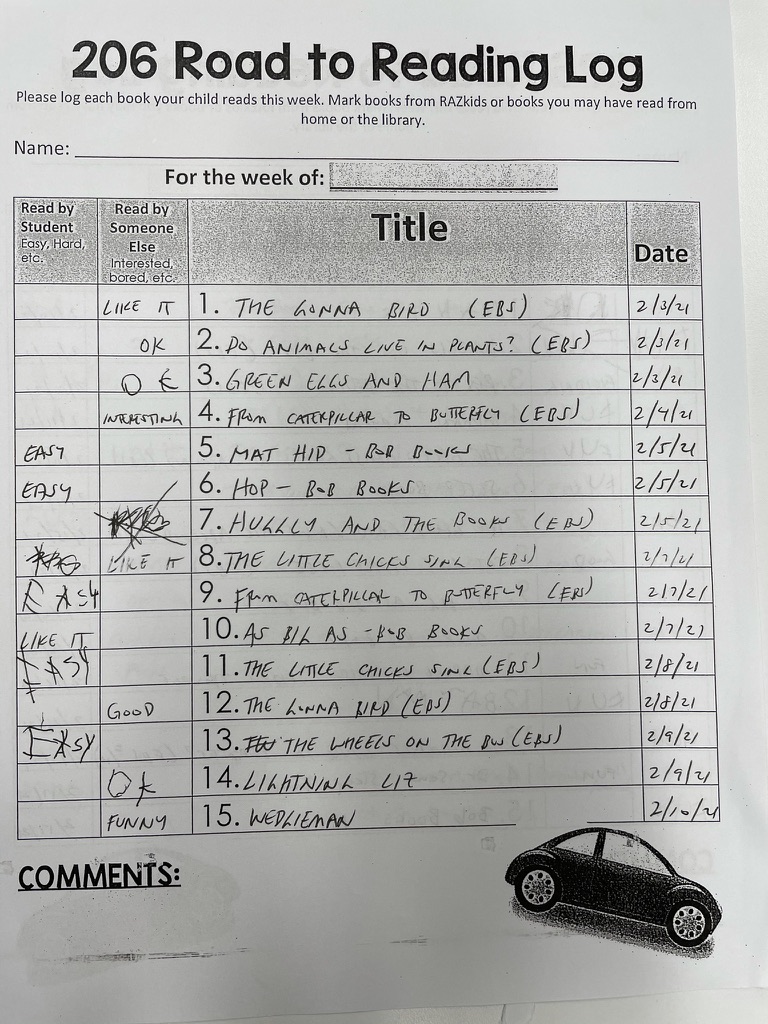 206 Road to Reading Log
Please log each book your child reads this week. Mark books from RAZkids or books you may have read from
home or the library.
Name:
For the week of:
Read by Student Easy, Hard, etc.
Read by Someone Else Interested, bored, etc.
Title
Date
LIKE IT 1. THE GONNA BIRD (EBS) 2/3/21
OK 2. DO ANIMALS LIVE IN PLANTS? (EBS) 2/3/21
OK 3. GREEN EGGS AND HAM 2/3/21
INTERESTING 4. FROM CATERPILLAR TO BUTTERFLY (EBS) 2/4/21
EASY 5. MAT HID - BOB BOOKS 2/5/21
EASY 6. HOP - BOB BOOKS 2/5/21
7. HUGGLY AND THE BOOKS (EBS) 2/5/21
LIKE IT 8. THE LITTLE CHICKS SING (EBS) 2/7/21
EASY 9. FROM CATERPILLAR TO BUTTERFLY (EBS) 2/7/21
LIKE IT 10. AS BIG AS - BOB BOOKS 2/7/21
EASY 11. THE LITTLE CHICKS SING (EBS) 2/8/21
GOOD 12. THE GONNA BIRD (EBS) 2/8/21
EASY 13. THE WHEELS ON THE BUS (EBS) 2/9/21
OK 14. LIGHTNING LIZ 2/9/21
FUNNY 15. WEDGIEMAN 2/10/21
COMMENTS: